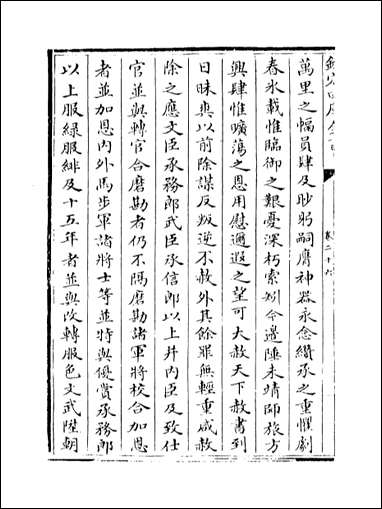 欽定四庫全書
萬里之幅員肆及眇躬嗣膺神器永念纘承之重懼劇
春氷載惟臨御之艱憂深朽索矧今邊陲未靖師旅方
興肆惟曠蕩之恩用慰邇遐之望可大赦天下赦書到
日昧爽以前除謀反叛逆不赦外其餘罪無輕重咸赦
除之應文臣承務郎武臣承信郎以上并内臣及致仕
官並與轉官合磨勘者仍不隔磨勘諸軍將校合加恩
者並加恩内外馬步軍諸將士等並特與優賞承務郎
以上服緑服緋及十五年者並與改轉服色文武陞朝